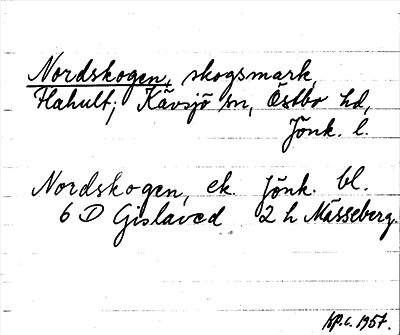 Nordskogen, skogsmark,
Hahult; Kävsjö sn, Östbo hd,
Jönk. l.
Nordskogen, ek. Jönk. bl.
6 D Gislaved 2 h Måsseberg.
KP.c. 1957.